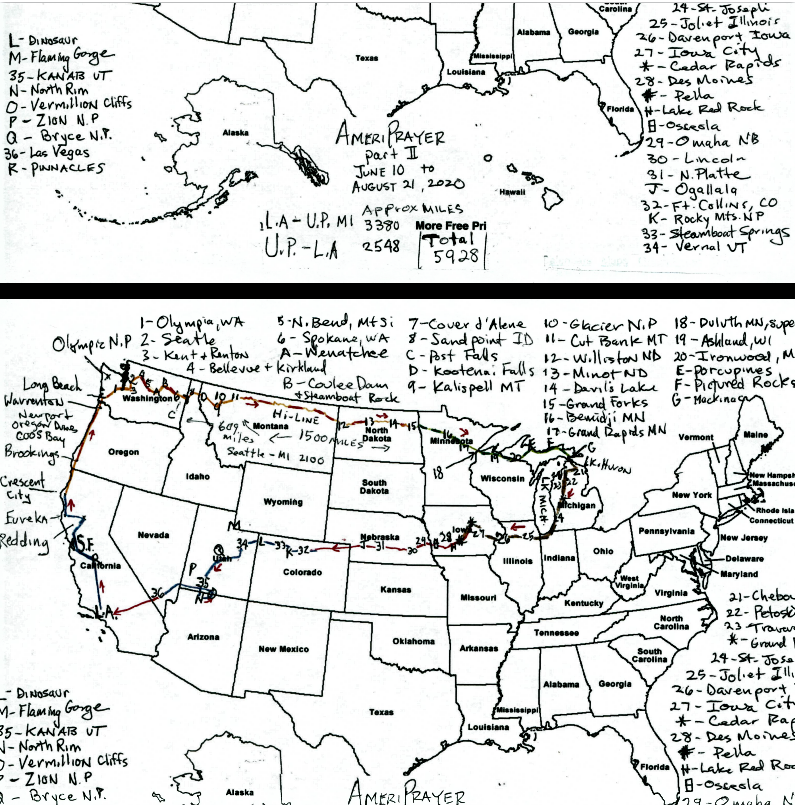 24-St. Joseph
25-Joliet Illinois
26-Davenport Iowa
27-Iowa City
*-Cedar Rapids
28-Des Moines
#-Pella
H-Lake Red Rock
-Osceola
29-Omaha NB
30-Lincoln
31-N.Platte
J-Ogallala
32-Ft. Collins, CO
K-Rocky Mts. N.P
33-Steamboat Springs
34-Vernal UT
L-DINOSAUR
M-Flaming Gorge
35-KANAB UT
N-North Rim
O-Vermillion Cliffs
P-ZION N.P
Q-Bryce N.P.
36-Las Vegas
R-PINNACLES
Carolina
Alabama
Georgia
Mississippi
Texas
Louisiana
Florida
Alaska
Hawaii
AMERIPRAYER
part II
JUNE 10 to
AUGUST 21, 2020
Approx MILES
L.A-U.P, MI 3380
More Free Pri
U.P.-L.A 2548
Total
5928
1-Olympia, WA
2-Seatle
3-Kent + Renton
4-Bellevue + Kirkland
5-N. Bend, Mt Si
6-Spokane, WA
A-Wenatchee
B-Coulee Dam
& Steamboat Rock
7-Cover d'Alene
8-Sandpoint ID
C-Post Falls
D-Kootenai Falls
9-Kalispell MT
10-Glacier N.P
11-Cut Bank MT
12-Williston ND
13-Minot ND
14-Davil's Lake
15-Grand Forks
16-Bemidji MN
17-Grand Rapids MN
18-Duluth MN, supe
19-Ashland, WI
20-Ironwood, M
E-Porcupines
F-Pictured Rocks
G-Mackinaw
Olympic N.P
Long Beach
Warrenton
Newport
Oregon Dunes
COOS Bay
Brookings
Crescent
City
Eureka
Redding
S.F.
L.A.
Washington
Oregon
Idaho
Montana
Hi-LINE
609
miles
1500 MILES
Seattle-MI 2100
North
Dakota
Minnesota
South
Dakota
Wyoming
Wisconsin
LK MICH
LK. Huron
Michigan
Nevada
Utah
California
Colorado
Nebraska
Iowa
Illinois
Indiana
Ohio
Kansas
Missouri
Kentucky
West
Virginia
Virginia
Pennsylvania
New York
Vermont
Maine
New Hampsh
Massachuse
Rhode Isla
Connecticut
New Jersey
Delaware
Maryland
Arizona
New Mexico
Oklahoma
Arkansas
Tennessee
North
Carolina
South
Carolina
Texas
Louisiana
Mississippi
Alabama
Georgia
Florida
Alaska
21-Chebo
22-Petosk
23-Travar
*-Grand
24-St. Jose
25-Joliet Illi
26-Davenport
27-Iowa Cit
*-Cedar Rap
28-Des Moines
#-Pella
H-Lake Red Roc
-Osceola
29-Omaha N
-DINOSAUR
M-Flaming Gorge
35-KANAB UT
N-North Rim
O-Vermillion Cliffs
P-ZION N.P
Q-Bryce N.P.
AMERIPRAYER